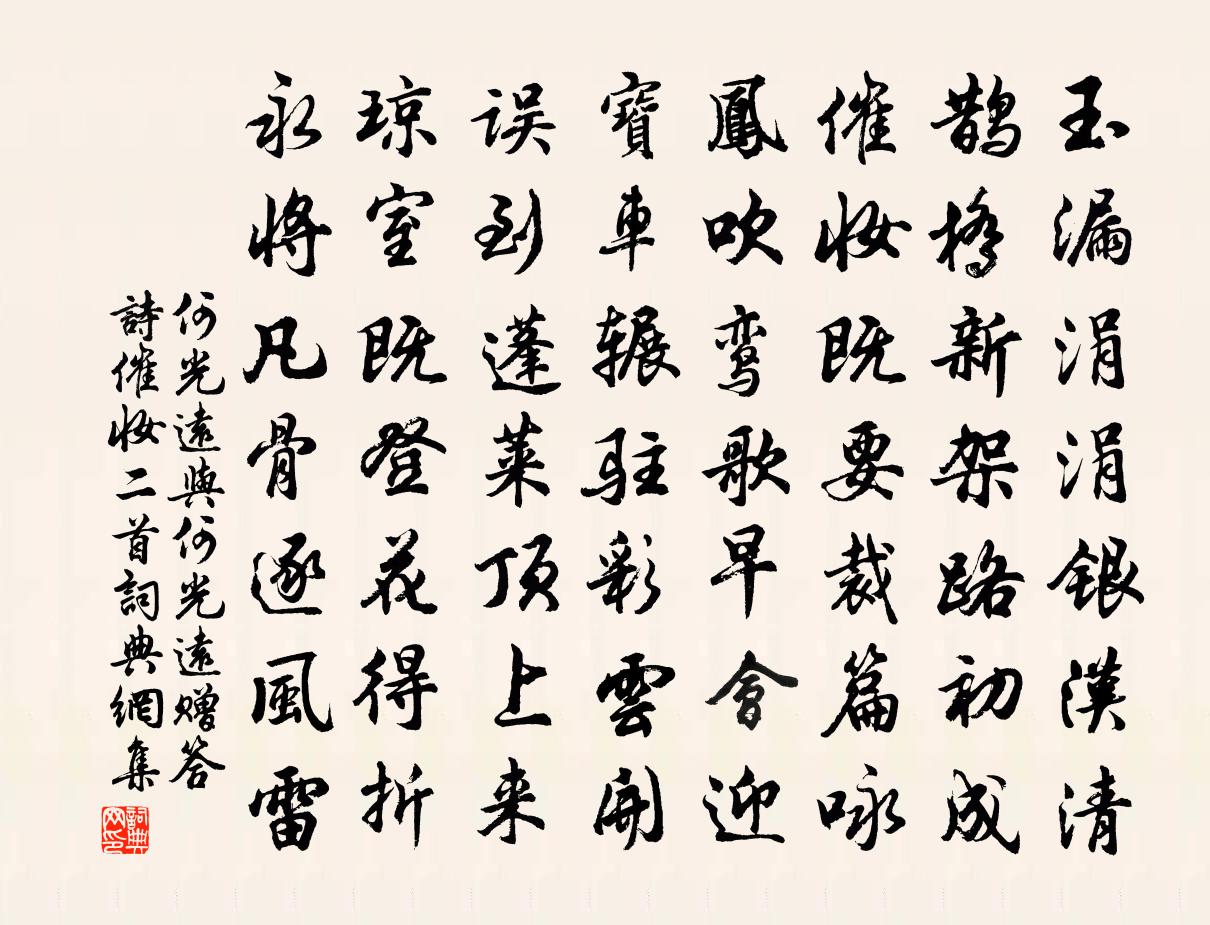 玉漏涓涓銀漢清
鹊橋新架路初成
催妝既要裁篇咏
鳳吹鸾歌早會迎
寶車辗驻彩雲開
误到蓬莱顶上来
琼室既登花得折
永将凡骨逐風雷
何光遠與何光遠赠答
詩催妝二首詞典網集
詞典
网印